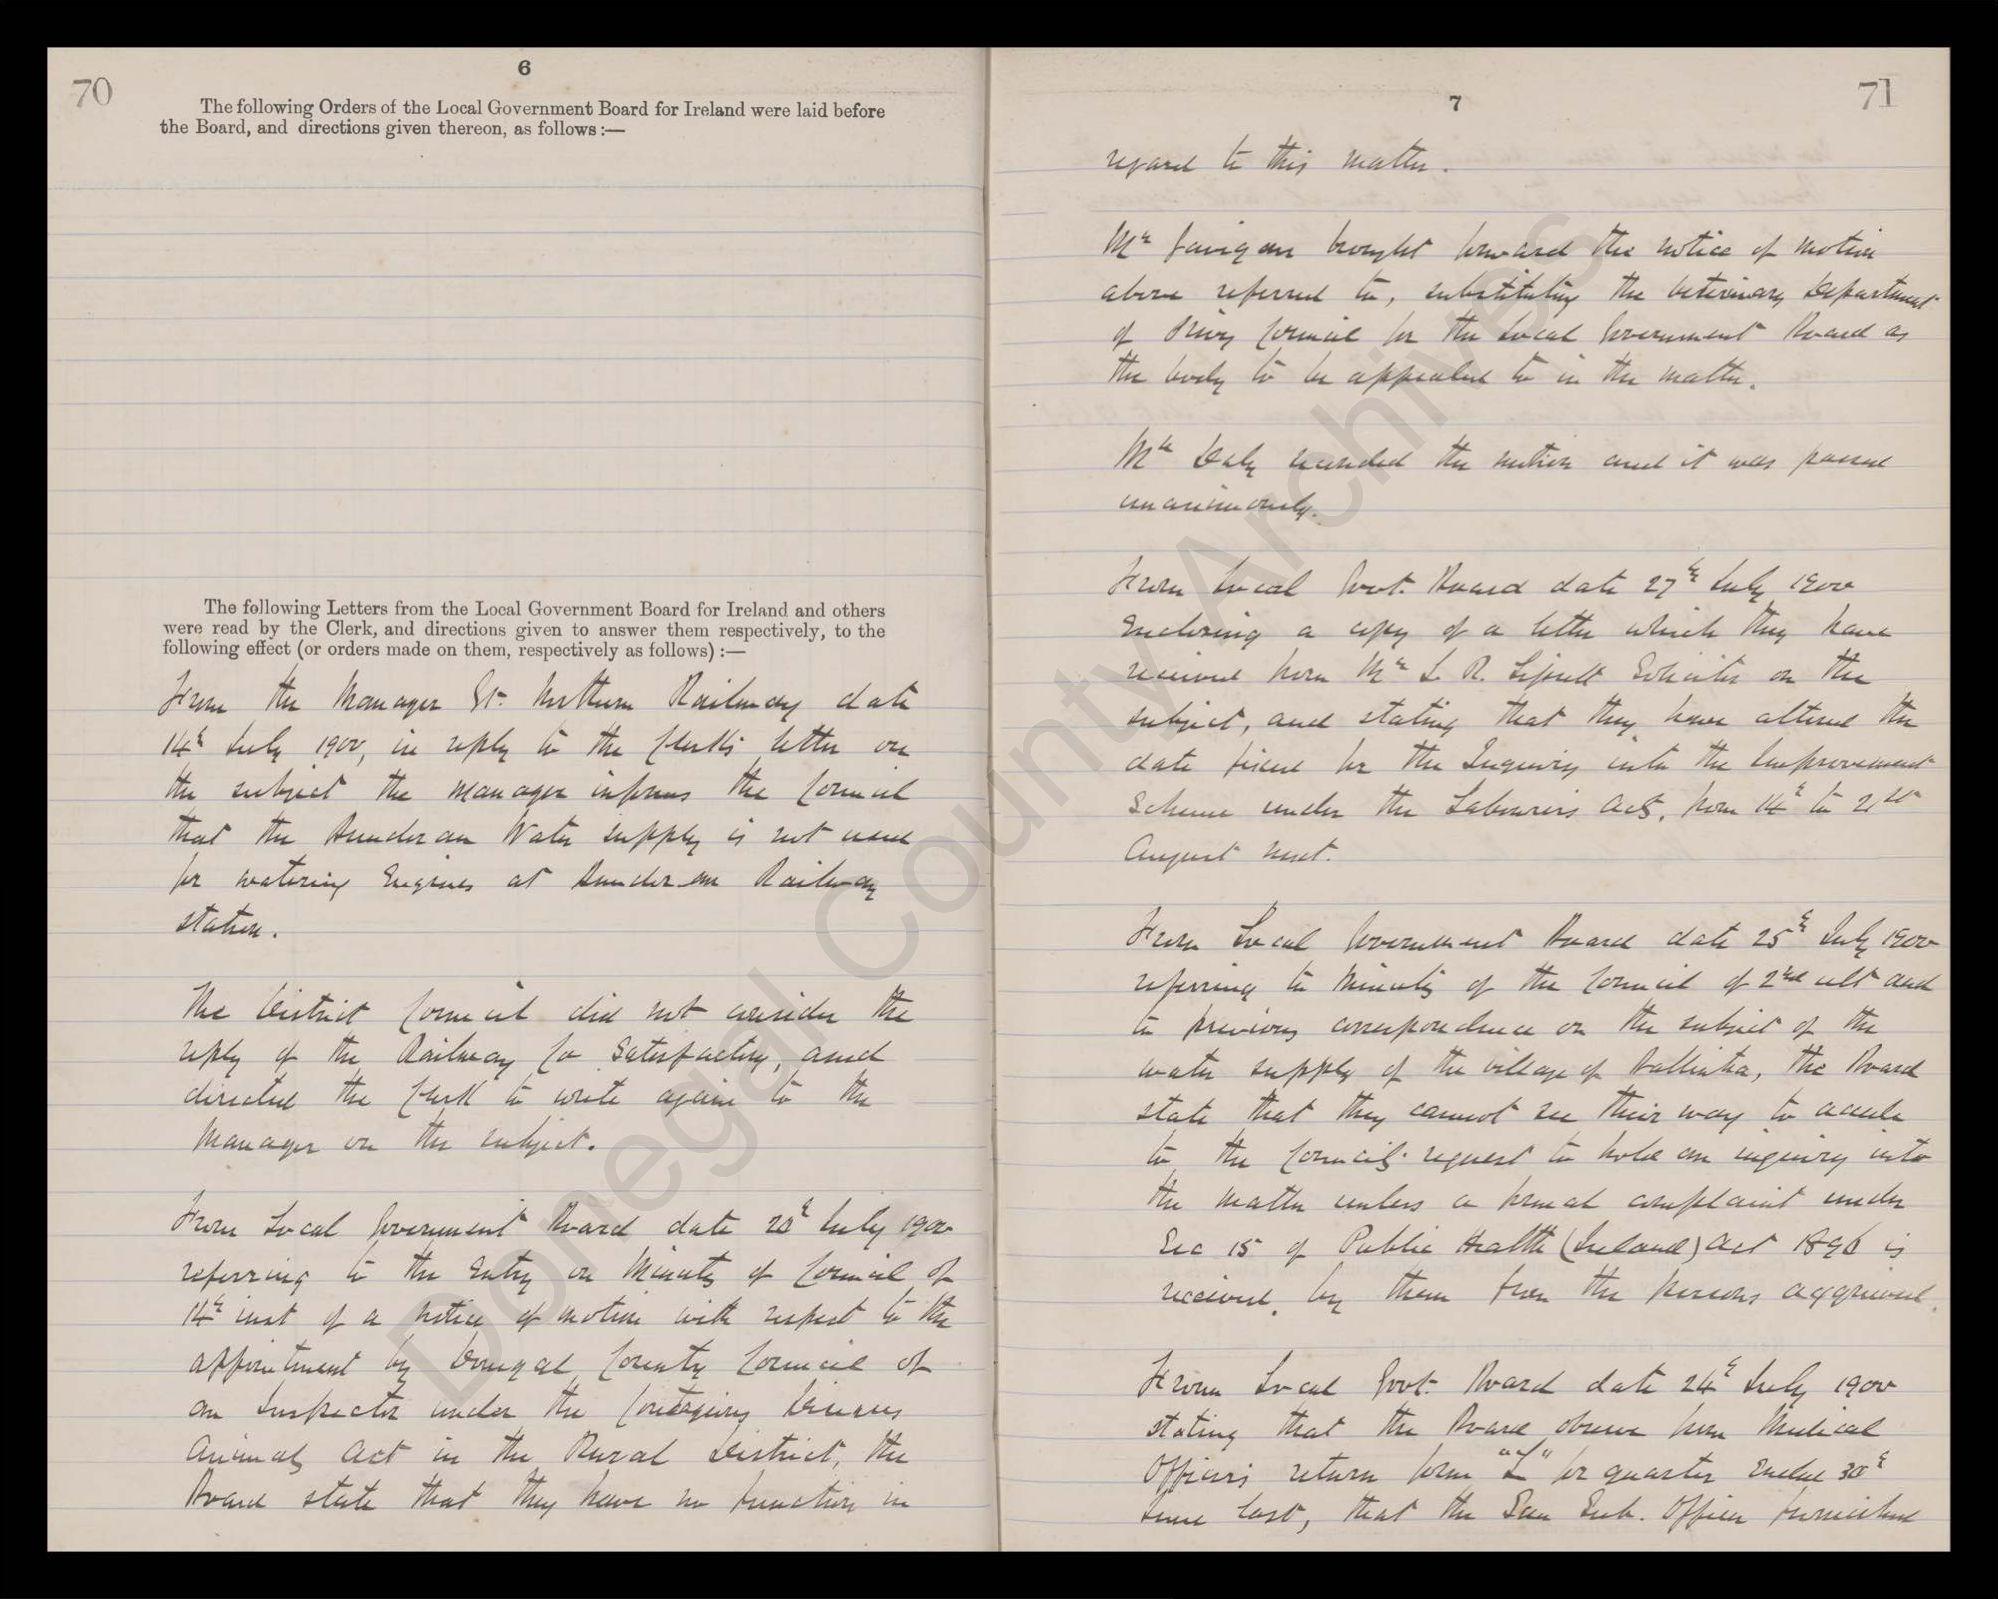 70
6
The following Orders of the Local Government Board for Ireland were laid before
the Board, and directions given thereon, as follows :—
The following Letters from the Local Government Board for Ireland and others
were read by the Clerk, and directions given to answer them respectively, to the
following effect (or orders made on them, respectively as follows) :—
From the Manager Gt. Northern Railway date
14th July 1900, in reply to the Clerk's letter on
the subject the manager informs the Council
that the Bundoran Water supply is not used
for watering Engines at Bundoran Railway
station.
The District Council did not consider the
reply of the Railway Co satisfactory, and
directed the Clerk to write again to the
Manager on the subject.
From Local Government Board date 20th July 1900
referring to the Entry on Minutes of Council of
14th inst of a notice of motion with respect to the
appointment by Donegal County Council of
an Inspector under the Contagious Diseases
Animals Act in the Rural District, the
Board state that they have no function in
71
7
regard to this matter.
Mr brought forward the notice of motion
above referred to, substituting the Veterinary Department
of Privy Council for the Local Government Board as
the body to be appealed to in the matter.
Mr Daly seconded the motion and it was passed
unanimously.
From Local Govt. Board date 27th July 1900
Enclosing a copy of a letter which they have
received from Mr L. R. Lipsett Solicitor on the
subject, and stating that they have altered the
date fixed for the Inquiry into the Improvement
Scheme under the Labourers Acts, from 14th to 21st
August next.
From Local Government Board date 25th July 1900
referring to Minutes of the Council of 2nd ult and
to previous correspondence on the subject of the
water supply of the village of Ballintra, the Board
state that they cannot see their way to accede
to the Councils request to hold an inquiry into
the matter unless a formal complaint under
Sec 15 of Public Health (Ireland) Act 1896 is
received by them from the persons aggrieved.
From Local Govt. Board date 24th July 1900
stating that the Board observe from Medical
Officers return form "L" for quarter ended 30th
June last, that the San Sub. Officer furnished
Donegal County Archives